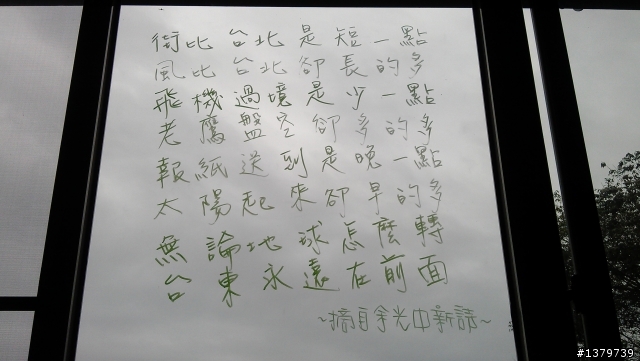 街比台北是短一點
風比台北卻長的多
飛機過境是少一點
老鷹盤空卻多的多
報紙送到是晚一點
太陽起來卻早的多
無論地球怎麼轉
台東永遠在前面
~摘自余光中新詩~
#1379739